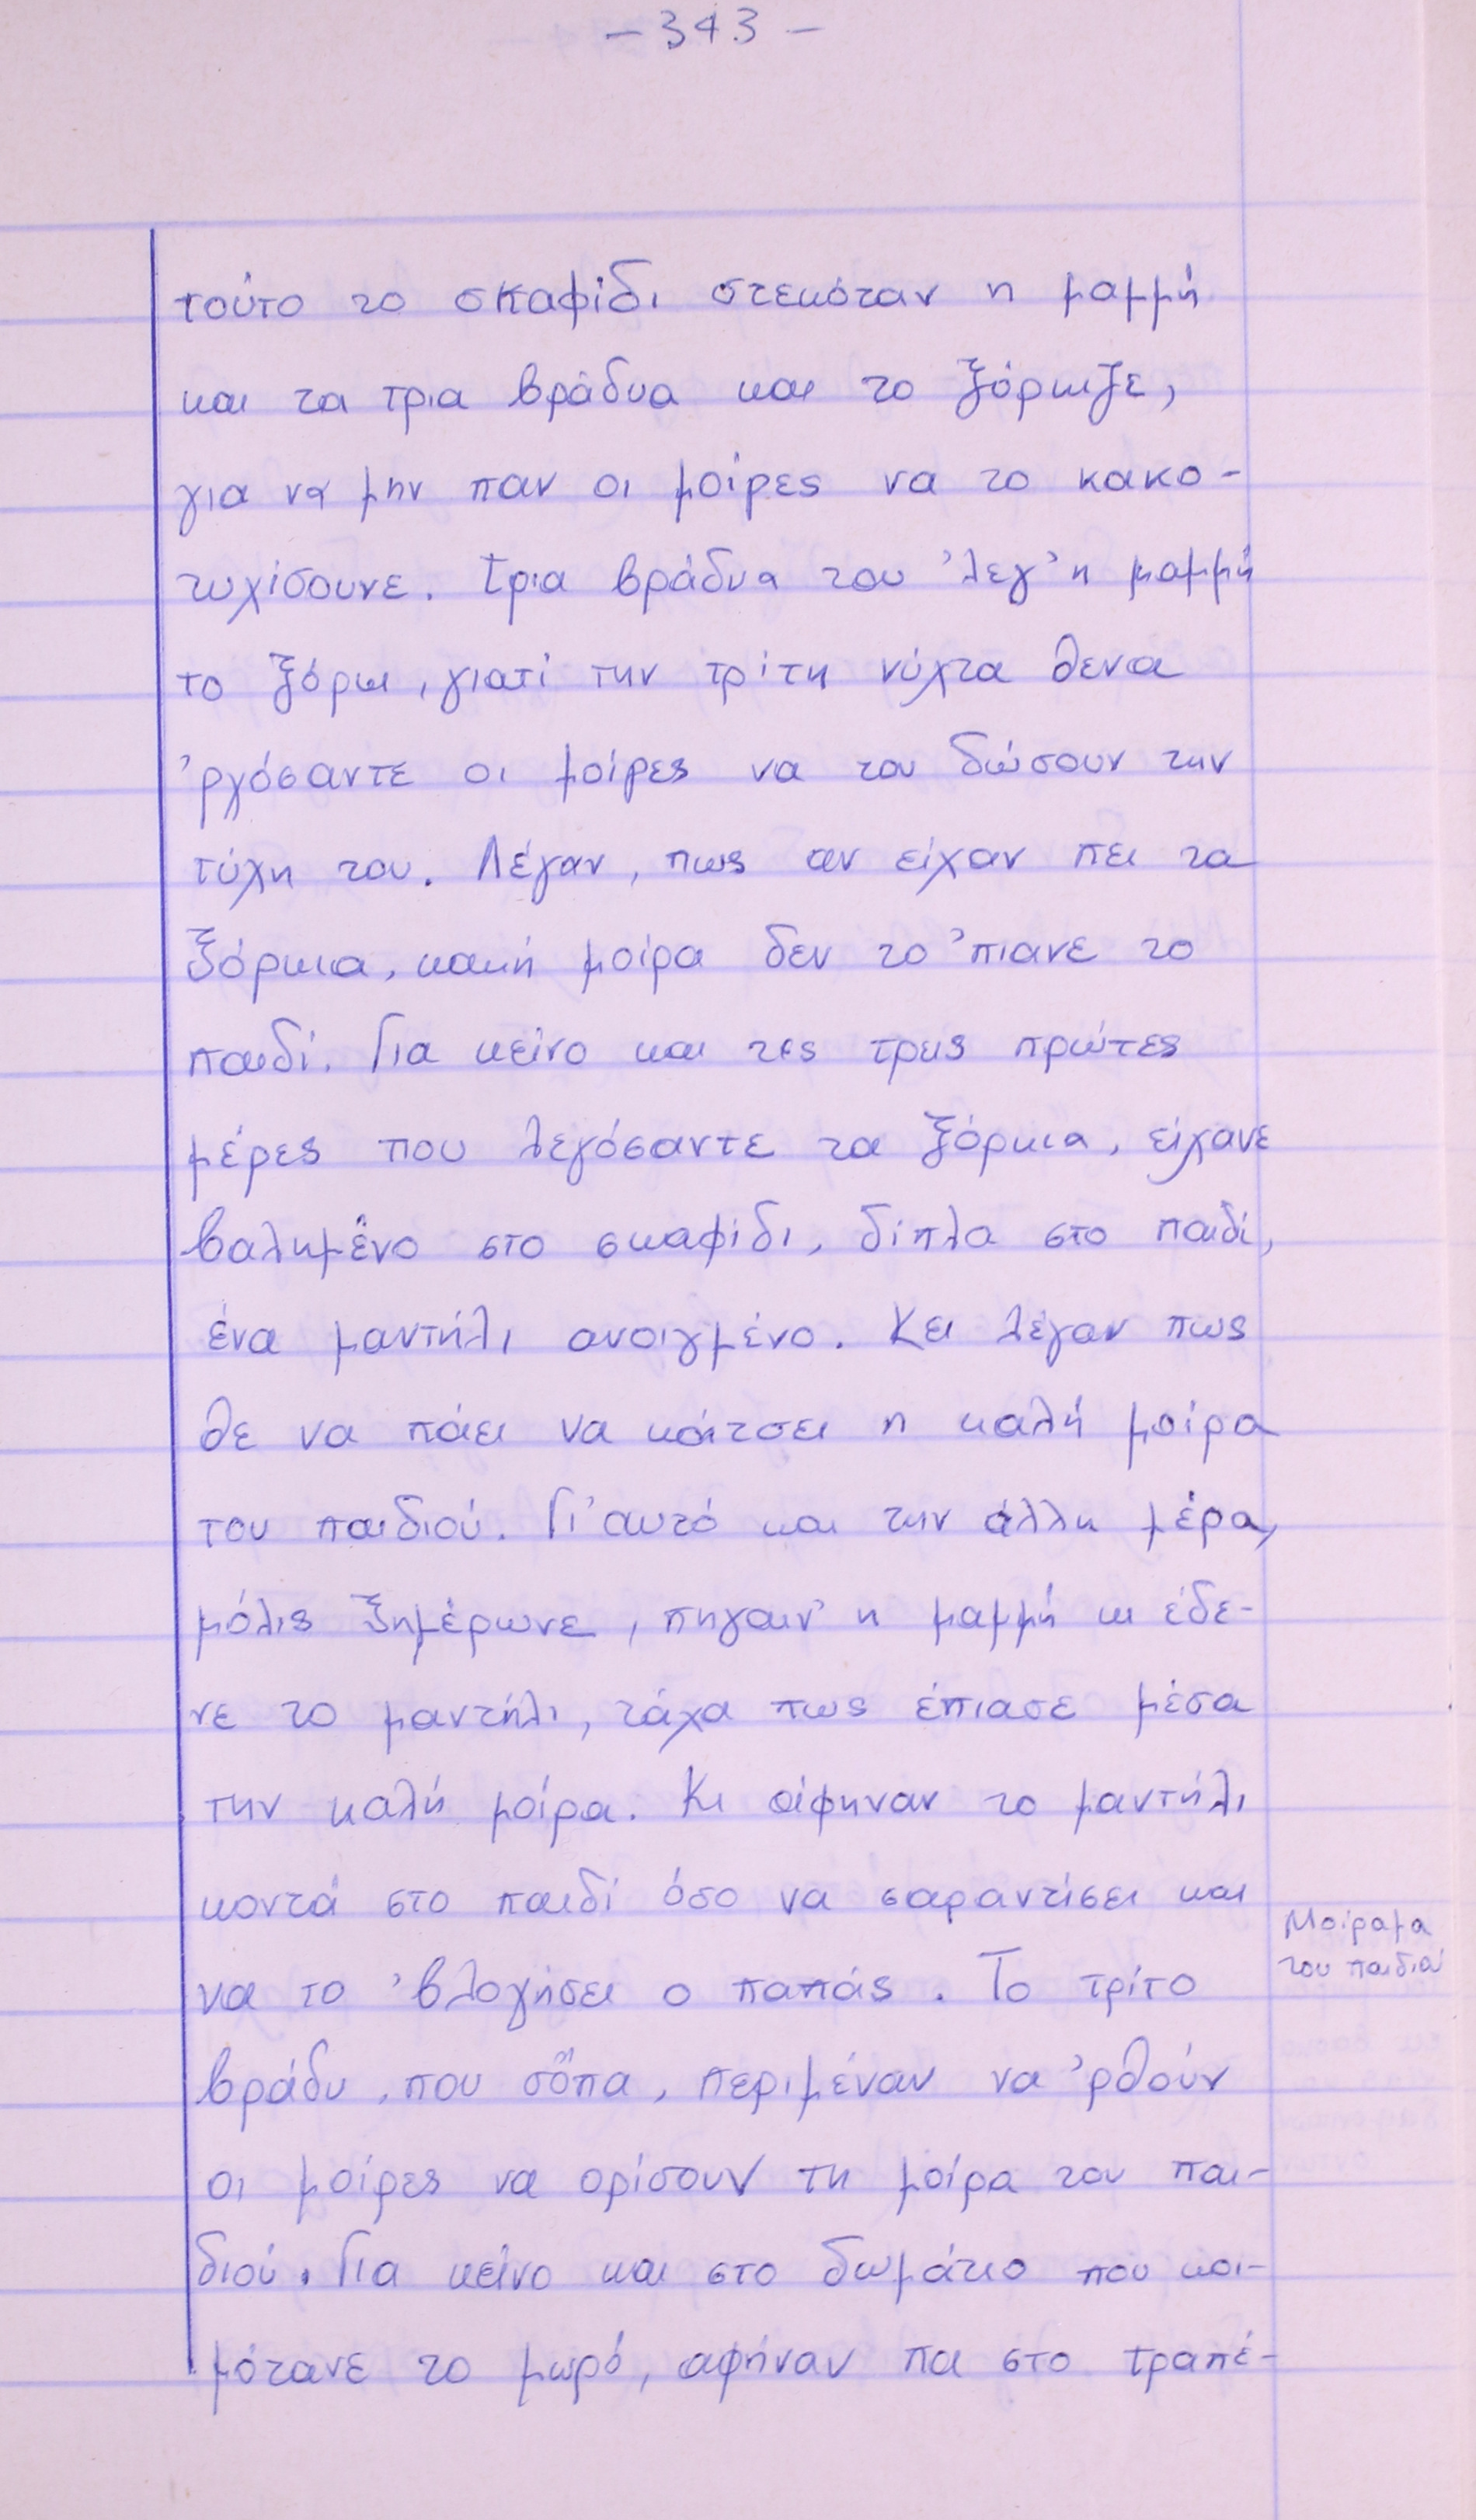 - 343 -
τούτο το σκαφίδι στεκόταν η μαμμή
και τα τρια βράδυα και το ξόρκιζε,
για να μην παν οι μοίρες να το κακο-
τυχίσουνε. Τρια βράδυα του 'λεγ' η μαμμή
το ξόρκι, γιατί την τρίτη νύχτα θενα
'ργόσαντε οι μοίρες να του δώσουν την
τύχη του. Λέγαν, πως αν είχαν πει τα
ξόρκια, κακή μοίρα δεν το 'πιανε το
παιδί. Για κείνο και τες τρεις πρώτες
μέρες που λεγόσαντε τα ξόρκια, είχανε
βαλημένο στο σκαφίδι, δίπλα στο παιδί,
ένα μαντήλι ανοιγμένο. Κει λέγαν πως
θε να πάει να κάτσει η καλή μοίρα
του παιδιού. Γι' αυτό και την άλλη μέρα,
μόλις ξημέρωνε, πηγαιν' η μαμμή κι έδε-
νε το μαντήλι, τάχα πως έπιασε μέσα
την καλή μοίρα. Κι αφήναν το μαντήλι
κοντά στο παιδί όσο να σαραντίσει και
να το 'βλογήσει ο παπάς. Το τρίτο
Μοίραμα
του παιδιού
βράδυ, που σὄπα, περιμέναν να 'ρθούν
οι μοίρες να ορίσουν τη μοίρα του παι-
διού. Για κείνο και στο δωμάτιο που κοι-
μότανε το μωρό, αφήναν πα στο τραπέ-